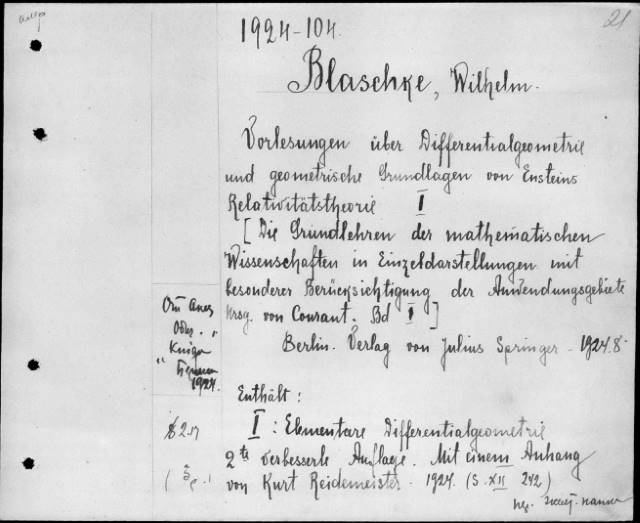 21
1924-104.
Blaschke, Wilhelm.
Vorlesungen über Differentialgeometrie
und geometrische Grundlagen von Ensteins
Relativitätstheorie I
[Die Grundlehren der mathematischen
Wissenschaften in Einzeldarstellungen mit
besonderer Berücksichtigung der Anwendungsgebiete
Hrsg. von Courant. Bd I]
Berlin. Verlag von Julius Springer - 1924. 8°
1924.
Enthält:
I: Elementare Differentialgeometrie
2te verbesserte Auflage. Mit einem Anhang
von Kurt Reidemeister. 1924. (S. XII 242)